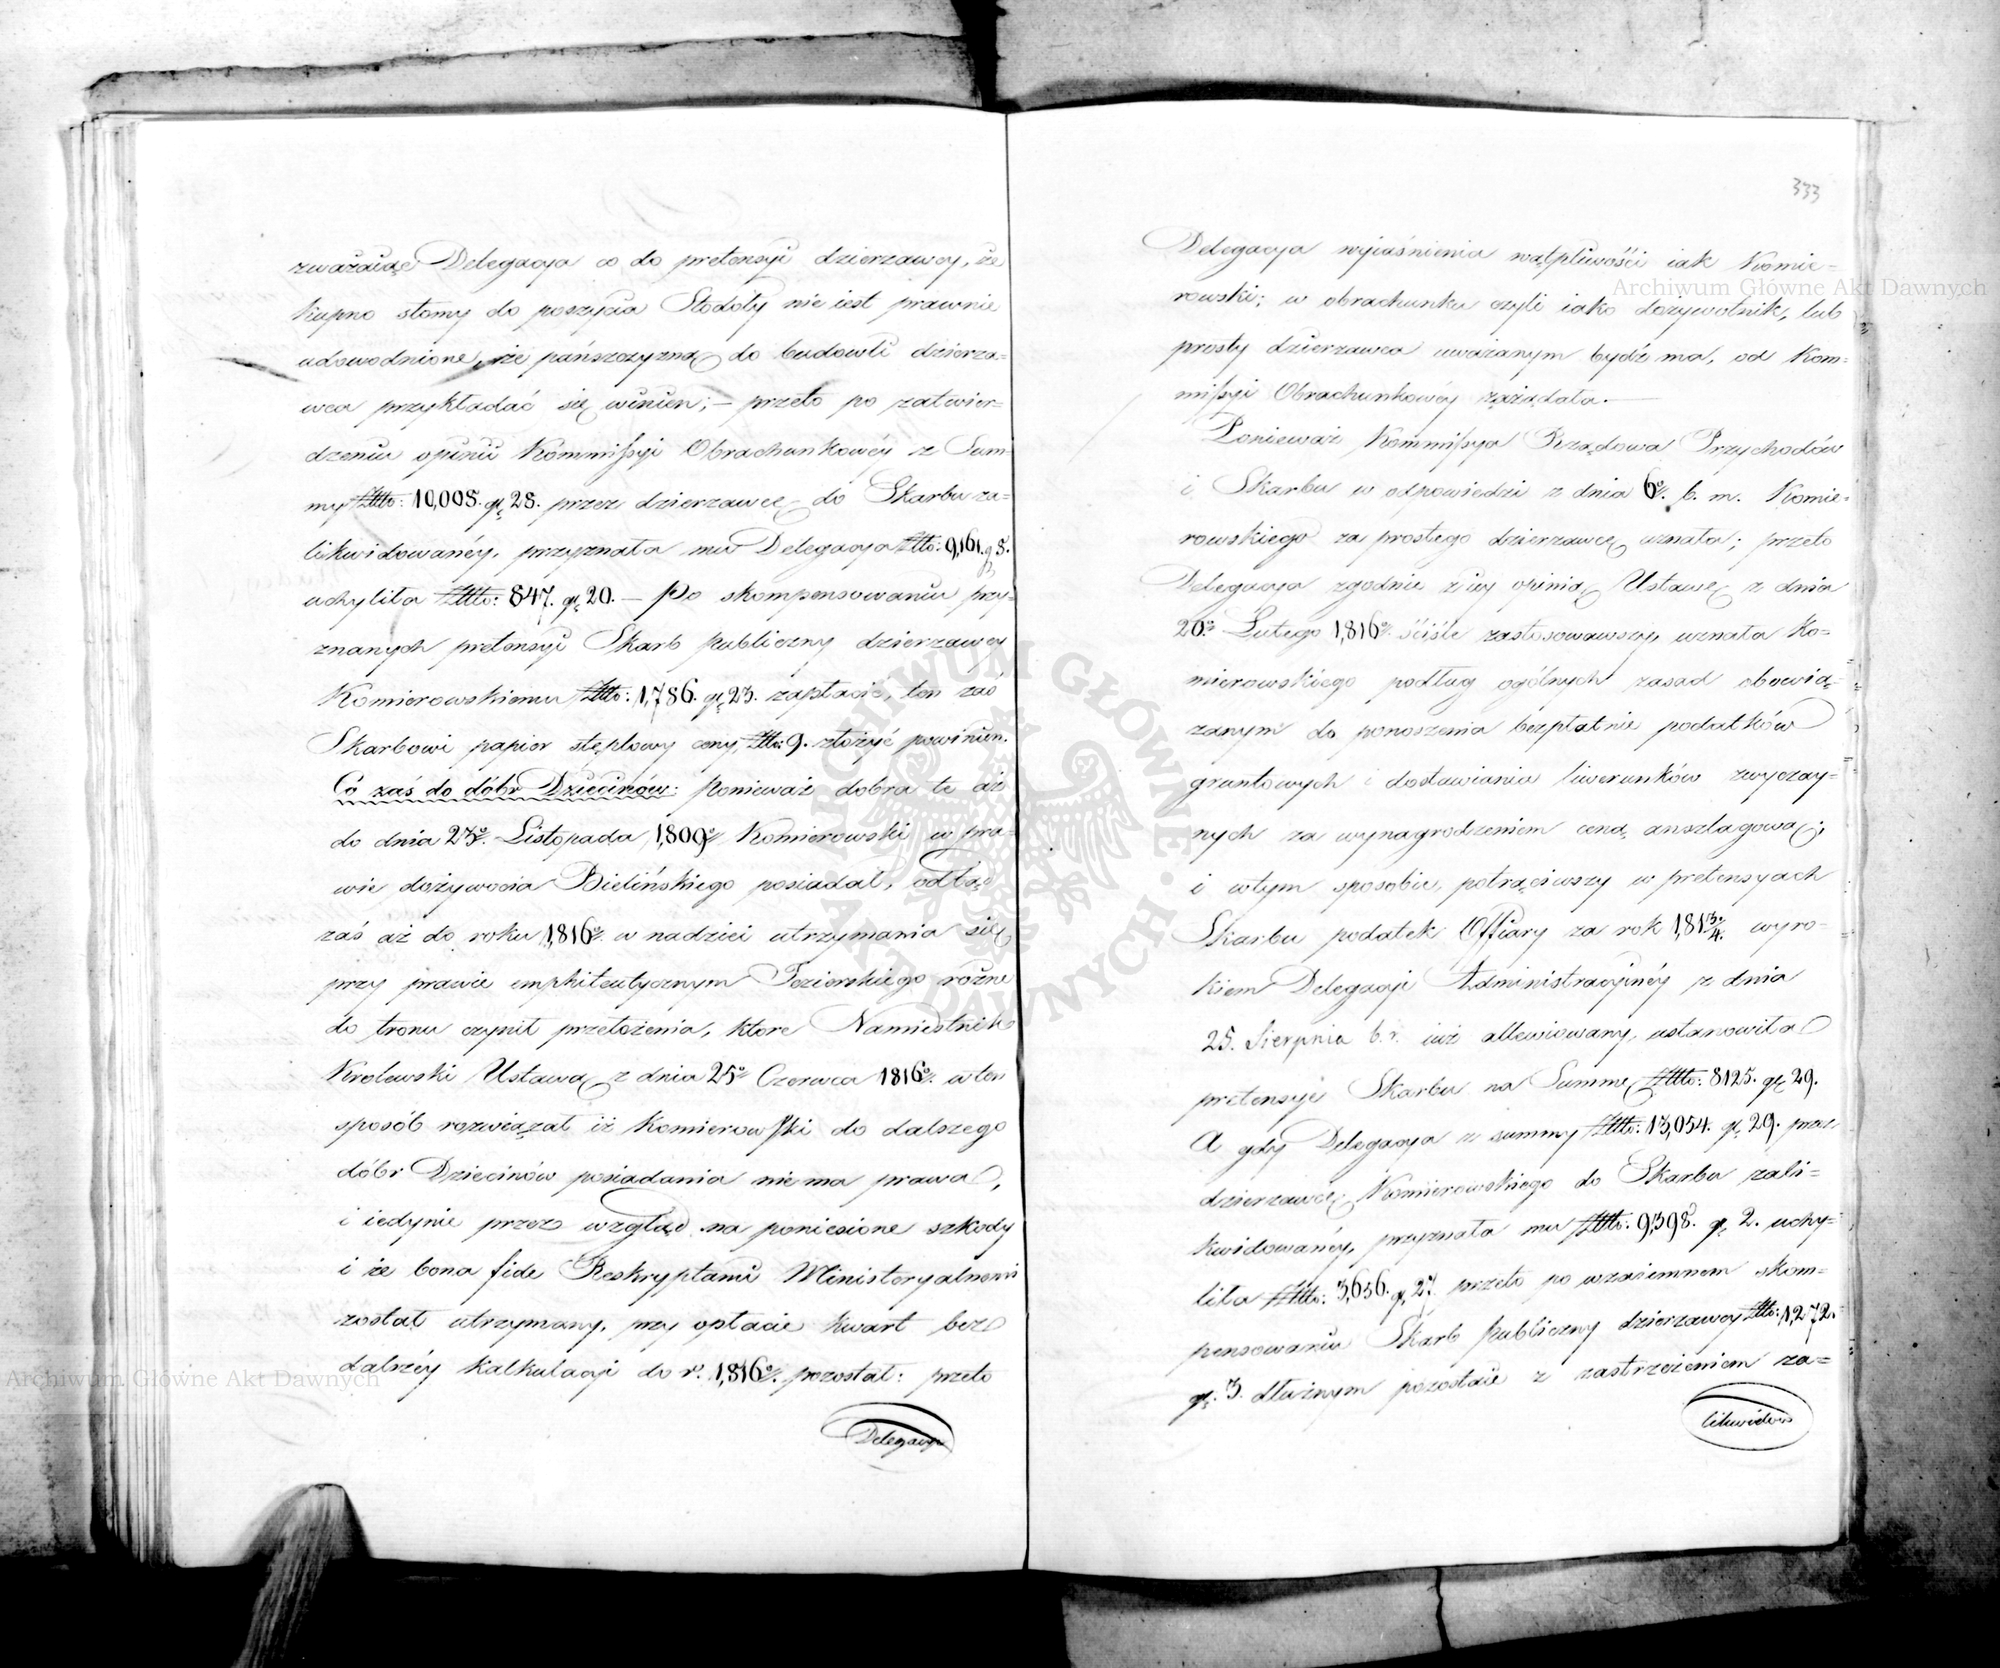 zważaiąc Delegacya co do pretensyi dzierzawcy, że
kupno słomy do poszycia Stodoły nie iest prawnie
udowodnione, że pańszczyzną do budowli dzierza=
wca przykładać się winien; – przeto po zatwier=
dzeniu opinii Kommissyi Obrachunkowéy z Sum=
my Złtto: 10,008. gr. 25. przez dzierzawcę do Skarbu za=
likwidowanéy, przyznała mu Delegacya Złtto: 9,161. gr. 5.
uchyliła Złtto: 847. gr. 20. – Po skompensowaniu przy=
znanych pretensyi Skarb Publiczny dzierzawcy
Komierowskiemu Złtto: 1,786. gr. 23. zapłacić, ten zaś
Skarbowi papier stęplowy ceny Złtto: 9. złożyć powinien.
Có zaś do dóbr Dziecinów: Ponieważ dobra te aż
do dnia 23º. Listopada 1,809º. Komierowski w pra=
wie dożywocia Bielińskiego posiadał, odtąd
zaś aż do roku 1,816º. w nadziei utrzymania się
przy prawie emphiteutycznym Jezierskiego rożne
do tronu czynił przełożenia, ktore Namiestnik
Krolewski Ustawą z dnia 25º Czerwca 1816º. w ten
sposób rozwiązał iż Komierowski do dalszego
dóbr Dziecinów posiadania nie ma prawa,
i iedynie przez wzgląd na poniesione szkody
i że bona fide Reskryptami Ministeryalnemi
został utrzymany, przy opłacie kwart bez
dalszéy kalkulacyi do r. 1,816º. pozostał: przeto
Delegacya
333
Delegacya wyiaśnienia wątpliwości iak Komie=
rowski; w obrachunku czyli iako dożywotnik, lub
prosty dzierzawca uważanym bydź ma, od Kom=
missyi Obrachunkowéy zażądała. –
Ponieważ Kommissya Rządowa Przychodów
i Skarbu w odpowiedzi z dnia 6º. b. m. Komie=
rowskiego za prostego dzierzawcę uznała; przeto
Delegacya zgodnie z iey opinią Ustawę z dnia
20º. Lutego 1,816º. ściśle zastosowawszy, uznała Ko=
mierowskiego podług ogólnych zasad obowią=
zanym do ponoszenia bezpłatnie podatków
gruntowych i dostawiania liwerunków zwyczay=
nych za wynagrodzeniem ceną anszlagową;
i w tym sposobie, potrąciwszy w pretensyach
Skarbu podatek Offiary za rok 1,813/4. wyro=
kiem Delegacyi Administracyinéy z dnia
25. Sierpnia b. r. iuż allewiowany, ustanowiła
pretensye Skarbu na Summę Złtto: 8125. gr. 29.
A gdy Delegacya z summy Złtto: 13,054. gr. 29. przez
dzierzawcę Komierowskiego do Skarbu zali=
kwidowanéy, przyznała mu Złtto: 9,398. gr. 2. uchy=
liła Złtto: 3,656. gr. 27. przeto po wzaiemnem skom=
pensowaniu Skarb Publiczny dzierzawcy Złtto: 1,272.
gr. 3. dłużnym pozostaie z zastrzeżeniem za=
likwidow
Archiwum Główne Akt Dawnych
Archiwum Główne Akt Dawnych
ARCHIWUM GŁÓWNE AKT DAWNYCH